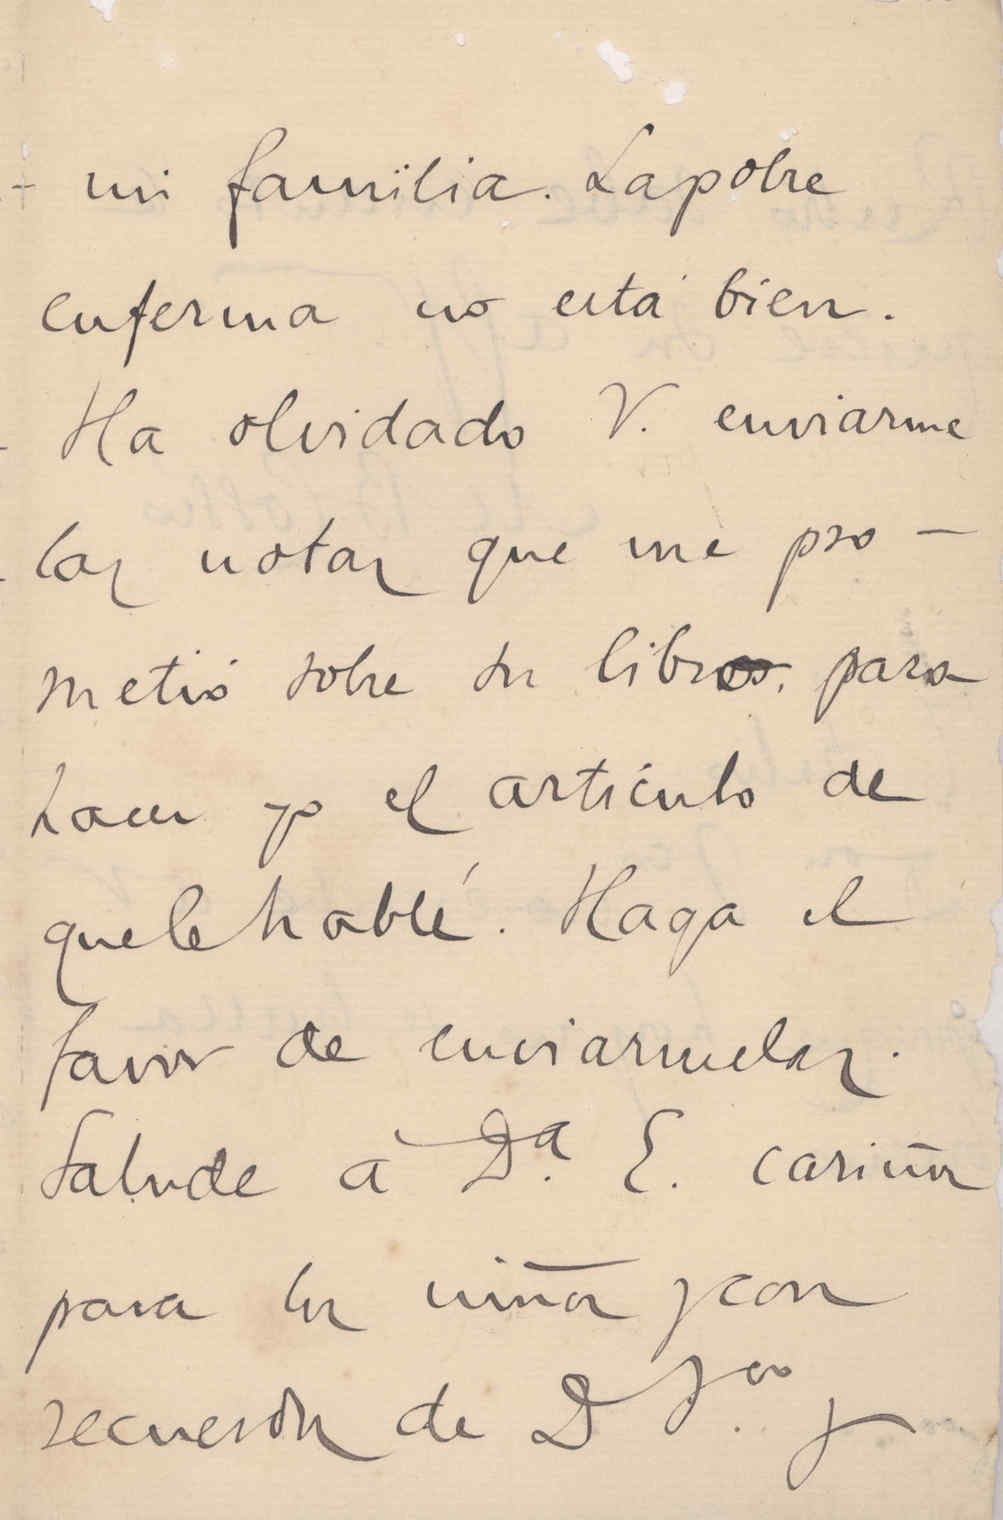 mi familia. La pobre
enferma no está bien.
Ha olvidado V. enviarme
las notas que me pro-
metió sobre su libro. para
hacer yo el artículo de
que le hablé. Haga el
favor de enviarmelas.
Salude a Dª. E. cariños
para los niños y con
recuerdos de D Fco. y